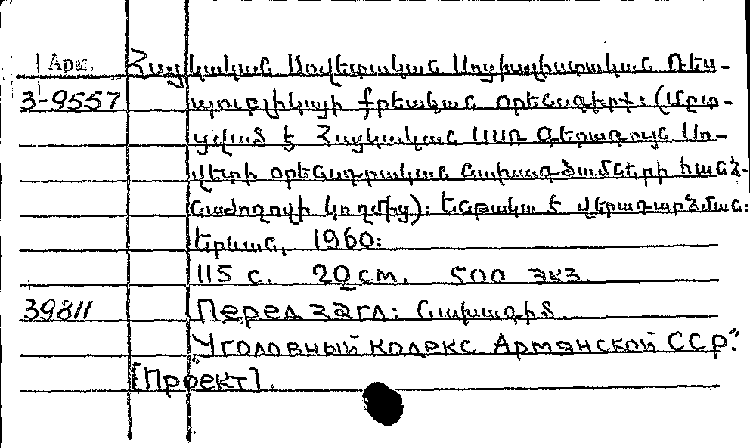 Арм. Հայկական Սովետական Սոցիալիստական Ռես-
3-9557 պուբլիկայի քրեական օրենսգիրք։ (Մշա-
կված է Հայկական ՍՍՌ Գերագույն Սո-
վետի օրենսդրական նախագծումների հանձ-
նաժողովի կողմից)։ Ենթակա է վերադարձման։
Երևան, 1960։
115 с. 20см. 500 экз.
39811 Перед загл: Նախագիծ.
"Уголовный кодекс Армянской ССР".
[Проект].